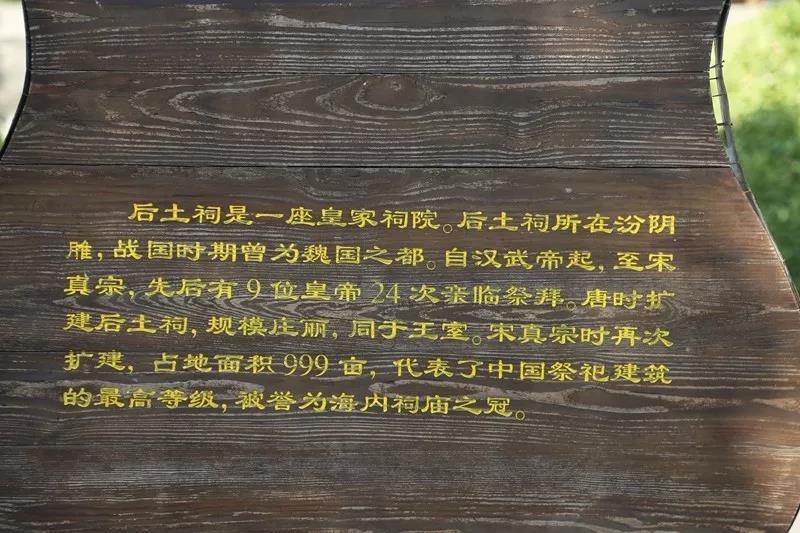 后土祠是一座皇家祠院。后土祠所在汾阴
雎，战国时期曾为魏国之都。自汉武帝起，至宋
真宗，先后有9位皇帝24次亲临祭拜。唐时扩
建后土祠，规模庄丽，同于王室。宋真宗时再次
扩建，占地面积999亩，代表了中国祭祀建筑
的最高等级，被誉为海内祠庙之冠。